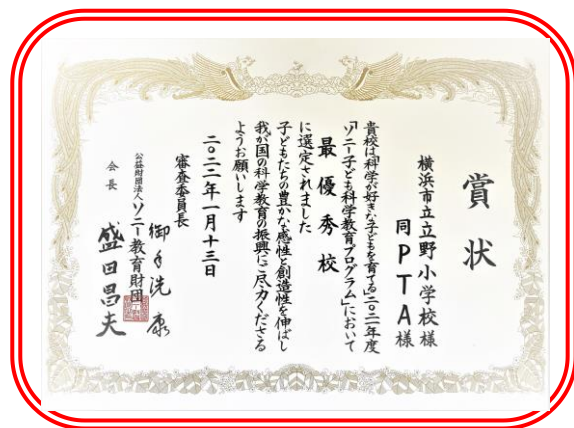 賞状
横浜市立立野小学校様
同PTA様
貴校は「科学が好きな子どもを育てる」二〇二一年度
「ソニー子ども科学教育プログラム」において
最優秀校
に選定されました
子どもたちの豊かな感性と創造性を伸ばし
我が国の科学教育の振興にご尽力くださる
ようお願いします
二〇二二年一月十三日
審査委員長
御手洗康
公益財団法人ソニー教育財団
会長
盛田昌夫